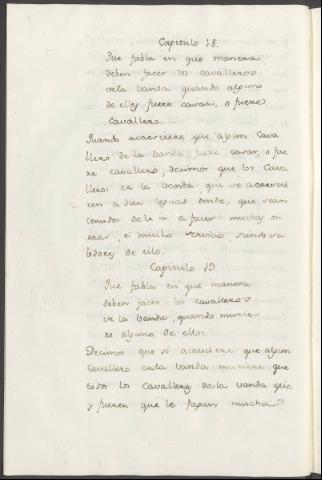 Capitulo 18.
Que fabla en que manera
deben facer los cavalleros
de la vanda quando alguno
de ellos fuere casar, o fuere
Cavallero.
Quando acaesciere que algun Cava
llero de la vanda, fuere casar, o fue
re cavallero, decimos que los Cava
lleros de la vanda, que se acaescie
ren a diez leguas dende, que sean
tenudos de le ir a facer mucha on
rra, e mucho servicio, siendo sa
bidores de ello.
Capitulo 19.
Que fabla en que manera
deben facer, los cavalleros
de la vanda, quando murie
re alguno de ellos.
Decimos que si acaesciere que algun
Cavallero de la vanda muriere que
todos los cavalleros de la vanda que
y fueren que le fagan mucha